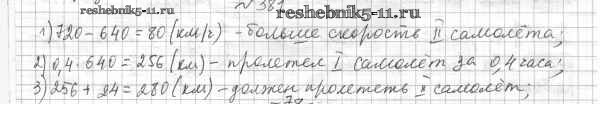 № 381
reshebnik5-11.ru
1) 720 - 640 = 80 (км/г) - больше скорость II самолёта;
2) 0,4 · 640 = 256 (км) - пролетел I самолёт за 0,4 часа;
3) 256 + 24 = 280 (км) - должен пролететь II самолёт;
reshebnik5-11.ru